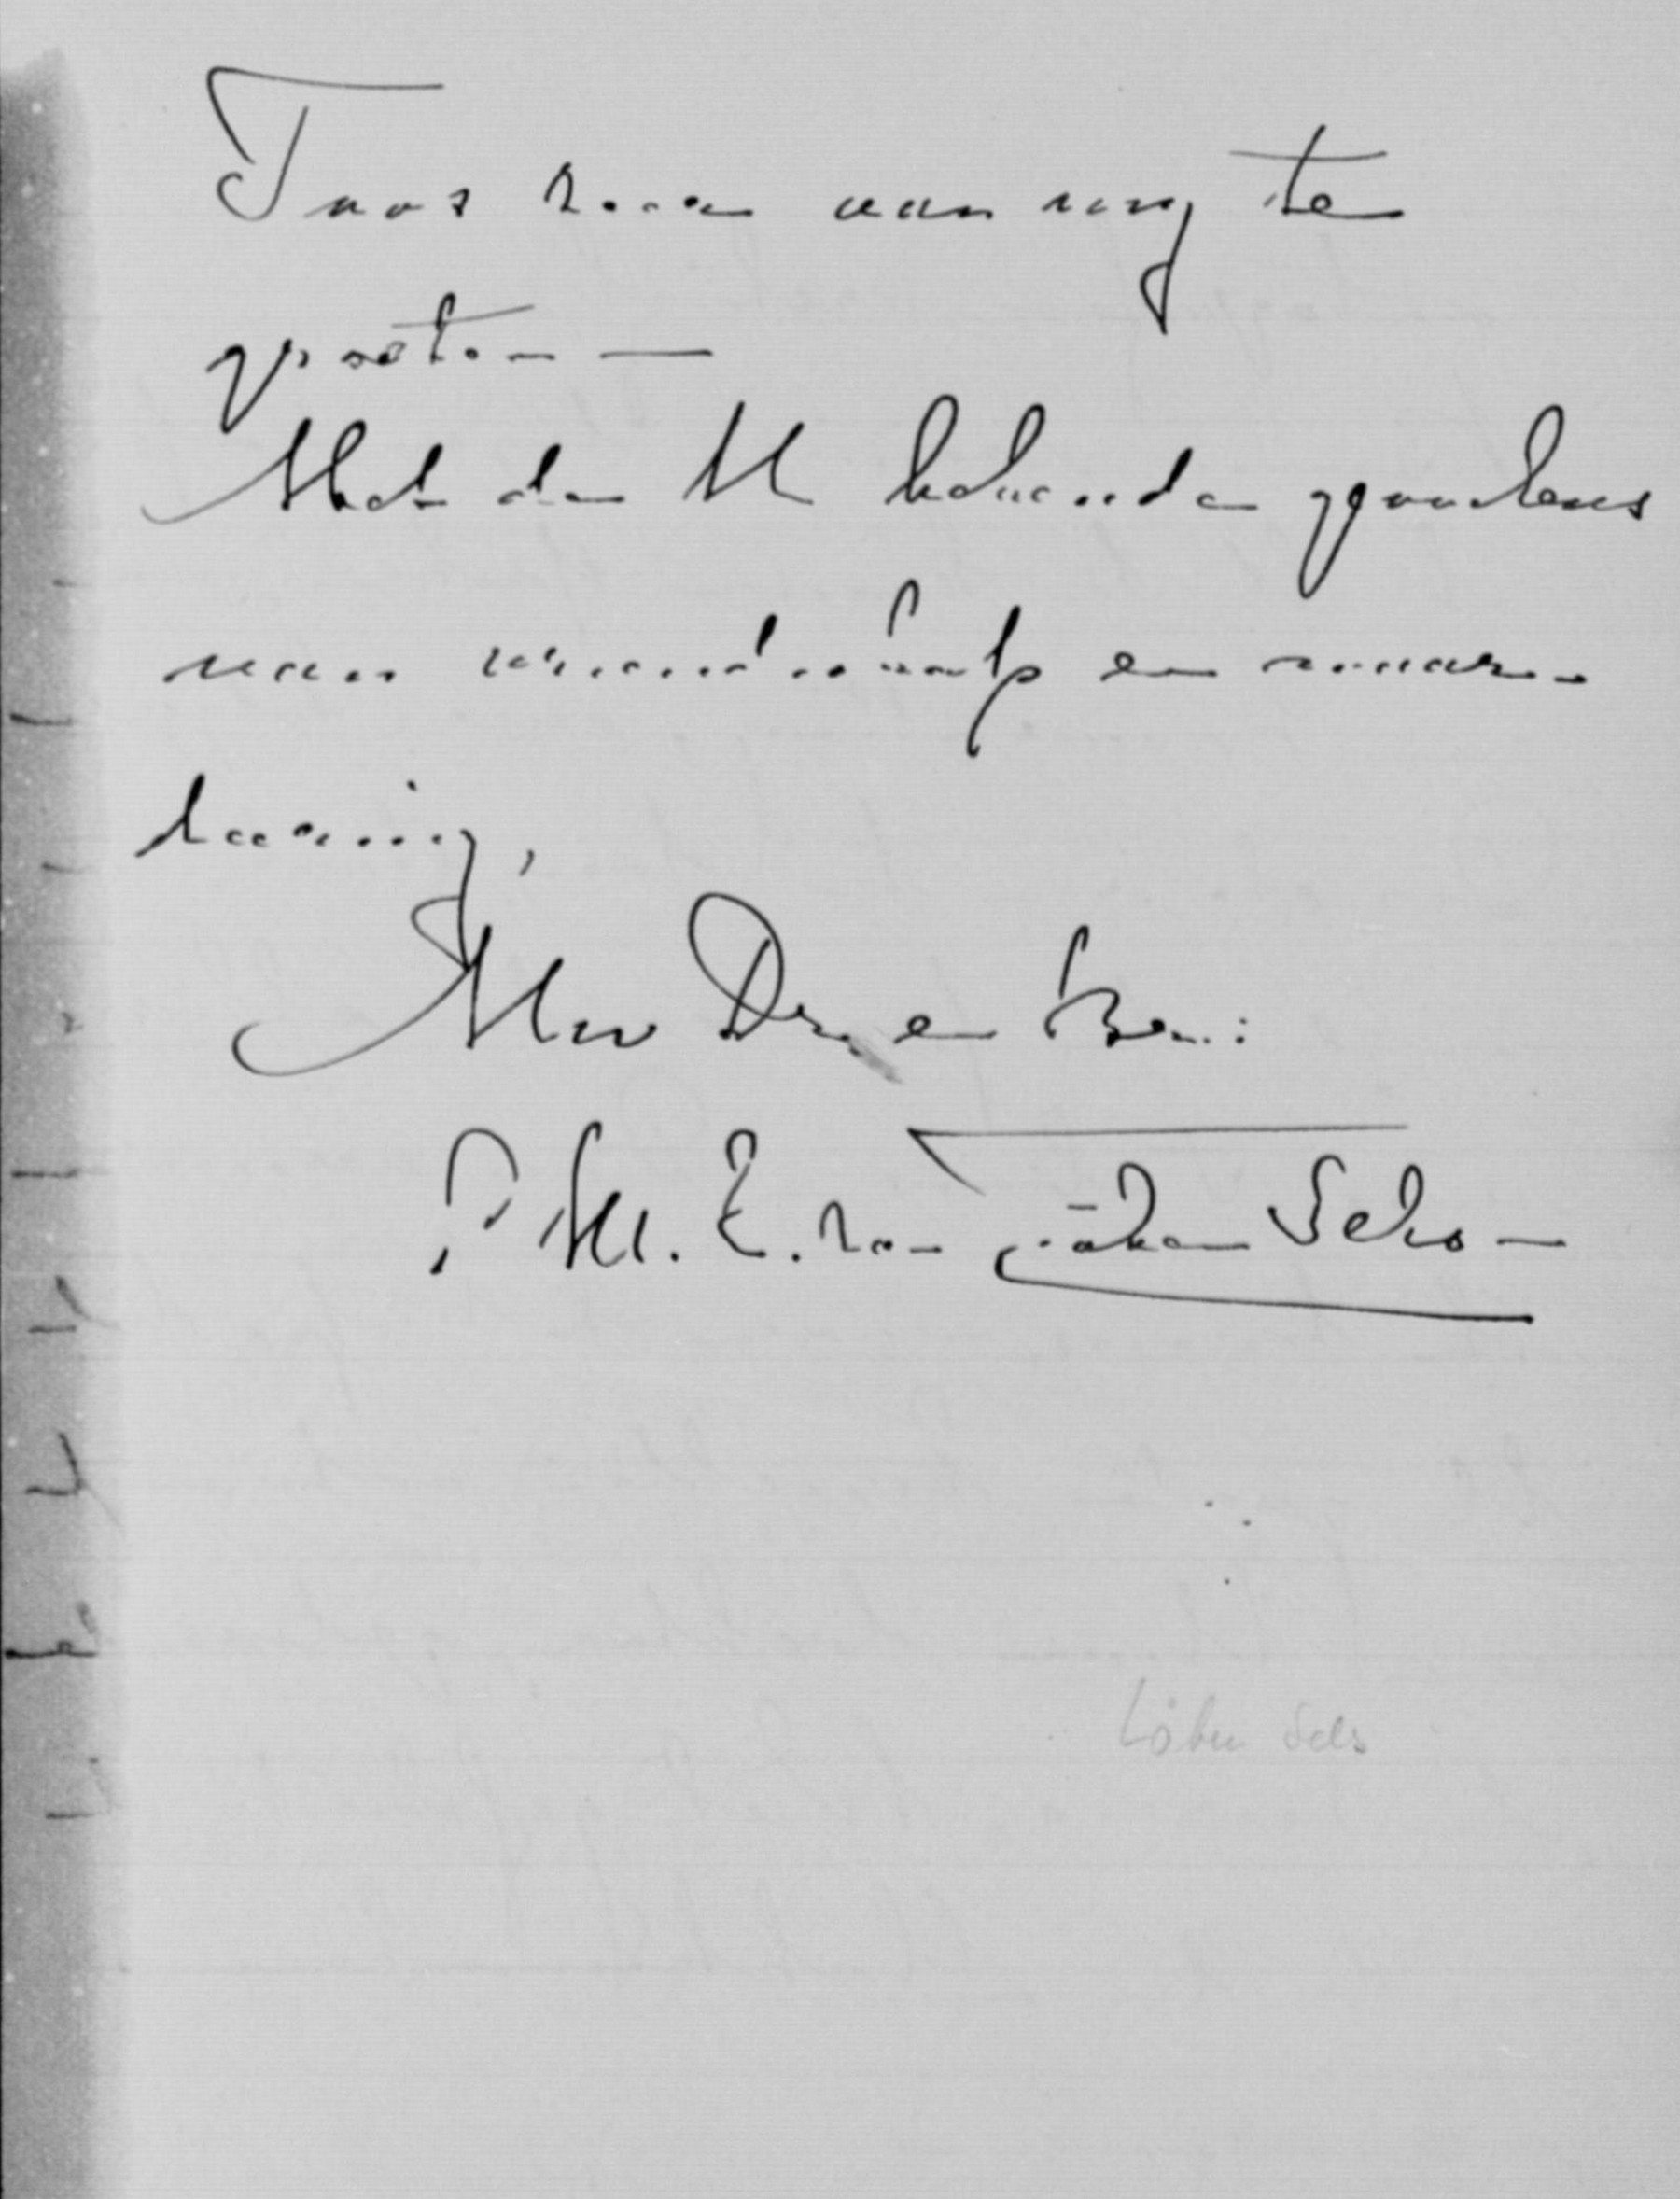 van mij te
groeten —
Met de U bekende gevoelens
van vriendschap en waar-
deering,
Uw Dw. en Br.:
M. E. van Löben Sels
Löben Sels